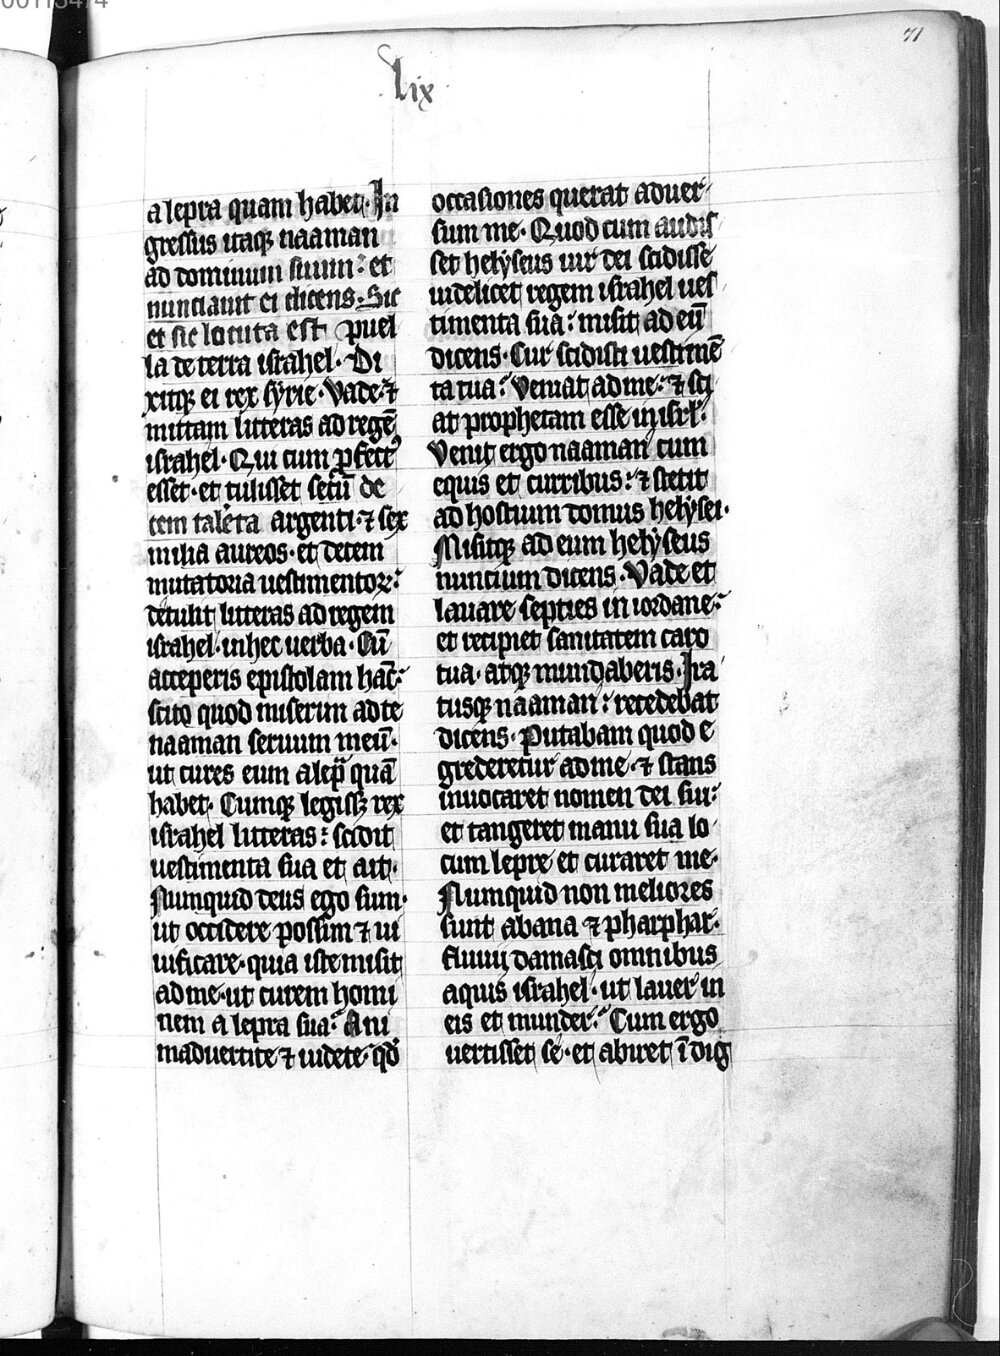 00113474
71
lix
a lepra quam habet. In
gressus itaqꝫ naaman
ad dominum suum: et
nunciauit ei dicens. Sic
et sic locuta est puel
la de terra israhel. Di
xitqꝫ ei rex syrie. Vade ⁊
mittam litteras ad regē
israhel. Qui cum ꝑfectꝰ
esset. et tulisset secū de
cem talēta argenti. ⁊ sex
milia aureos. et decem
mutatoria uestimentoꝝ:
detulit litteras ad regem
israhel. in hec uerba. Cū
acceperis epistolam hāc:
scito quod miserim ad te
naaman seruum meū.
ut cures eum a lep̄ quā
habet. Cumqꝫ legissꝫ rex
israhel litteras: scidit
uestimenta sua et ait.
Numquid deus ego sum.
ut occidere possum ⁊ ui
uificare. quia iste misit
ad me. ut curem homi
nem a lepra sua? Ani
maduertite ⁊ uidete. qd̄
occasiones querat aduer
sum me. Quod cum audis
set helyseus uir dei scidisse
uidelicet regem israhel ues
timenta sua: misit ad eū
dicens. Cur scidisti uestimē
ta tua? Veniat ad me: ⁊ sci
at prophetam esse in isrl̄.
Venit ergo naaman cum
equis et curribus: ⁊ stetit
ad hostium domus helysei.
Misitqꝫ ad eum helyseus
nuncium dicens. Vade et
lauare septies in iordane:
et recipiet sanitatem caro
tua. atqꝫ mundaberis. Ira
tusqꝫ naaman: recedebat
dicens. Putabam quod e
grederetur ad me. ⁊ stans
inuocaret nomen dei sui:
et tangeret manu sua lo
cum lepre et curaret me.
Numquid non meliores
sunt abana ⁊ pharphar.
fluuij damasci omnibus
aquis israhel. ut lauer in
eis et munder? Cum ergo
uertisset se. et abiret ī dig